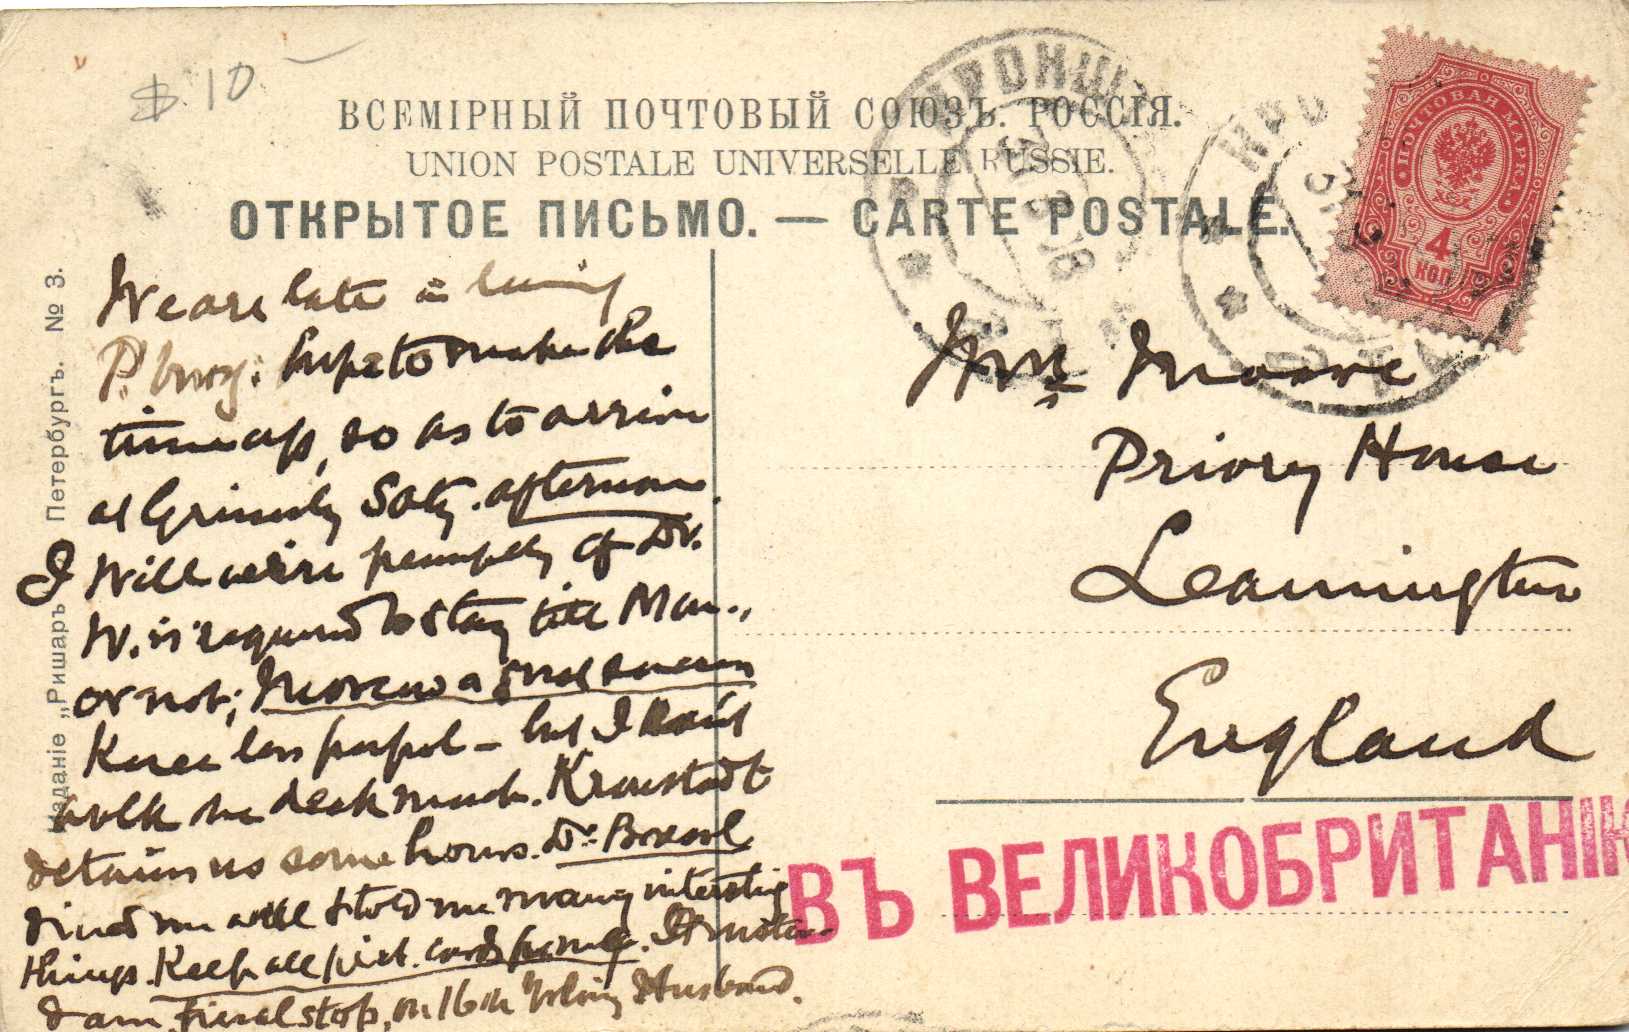 $ 10 –
ВСЕМІРНЫЙ ПОЧТОВЫЙ СОЮЗЪ. РОССІЯ.
UNION POSTALE UNIVERSELLE RUSSIE.
ОТКРЫТОЕ ПИСЬМО. — CARTE POSTALE.
ПОЧТОВАЯ МАРКА
4
КОП
We are late in leaving
P.burg: hope to make the
time up, so as to arrive
at Grimsby Saty. afternoon.
I will wire promptly if Dr.
W. is required to stay till Mon.,
or not; Moscow a good
Knee less – but I don't
walk me much. Kronstadt
detains us some hours. Dr
dined me well & told me many interesting
things. Keep all pict. cards
I am, final stop, on 16th Husband.
Mrs Moore
Priory House
Leamington
England
ВЪ ВЕЛИКОБРИТАНІЮ
Изданіе „Ришаръ Петербургъ. № 3.